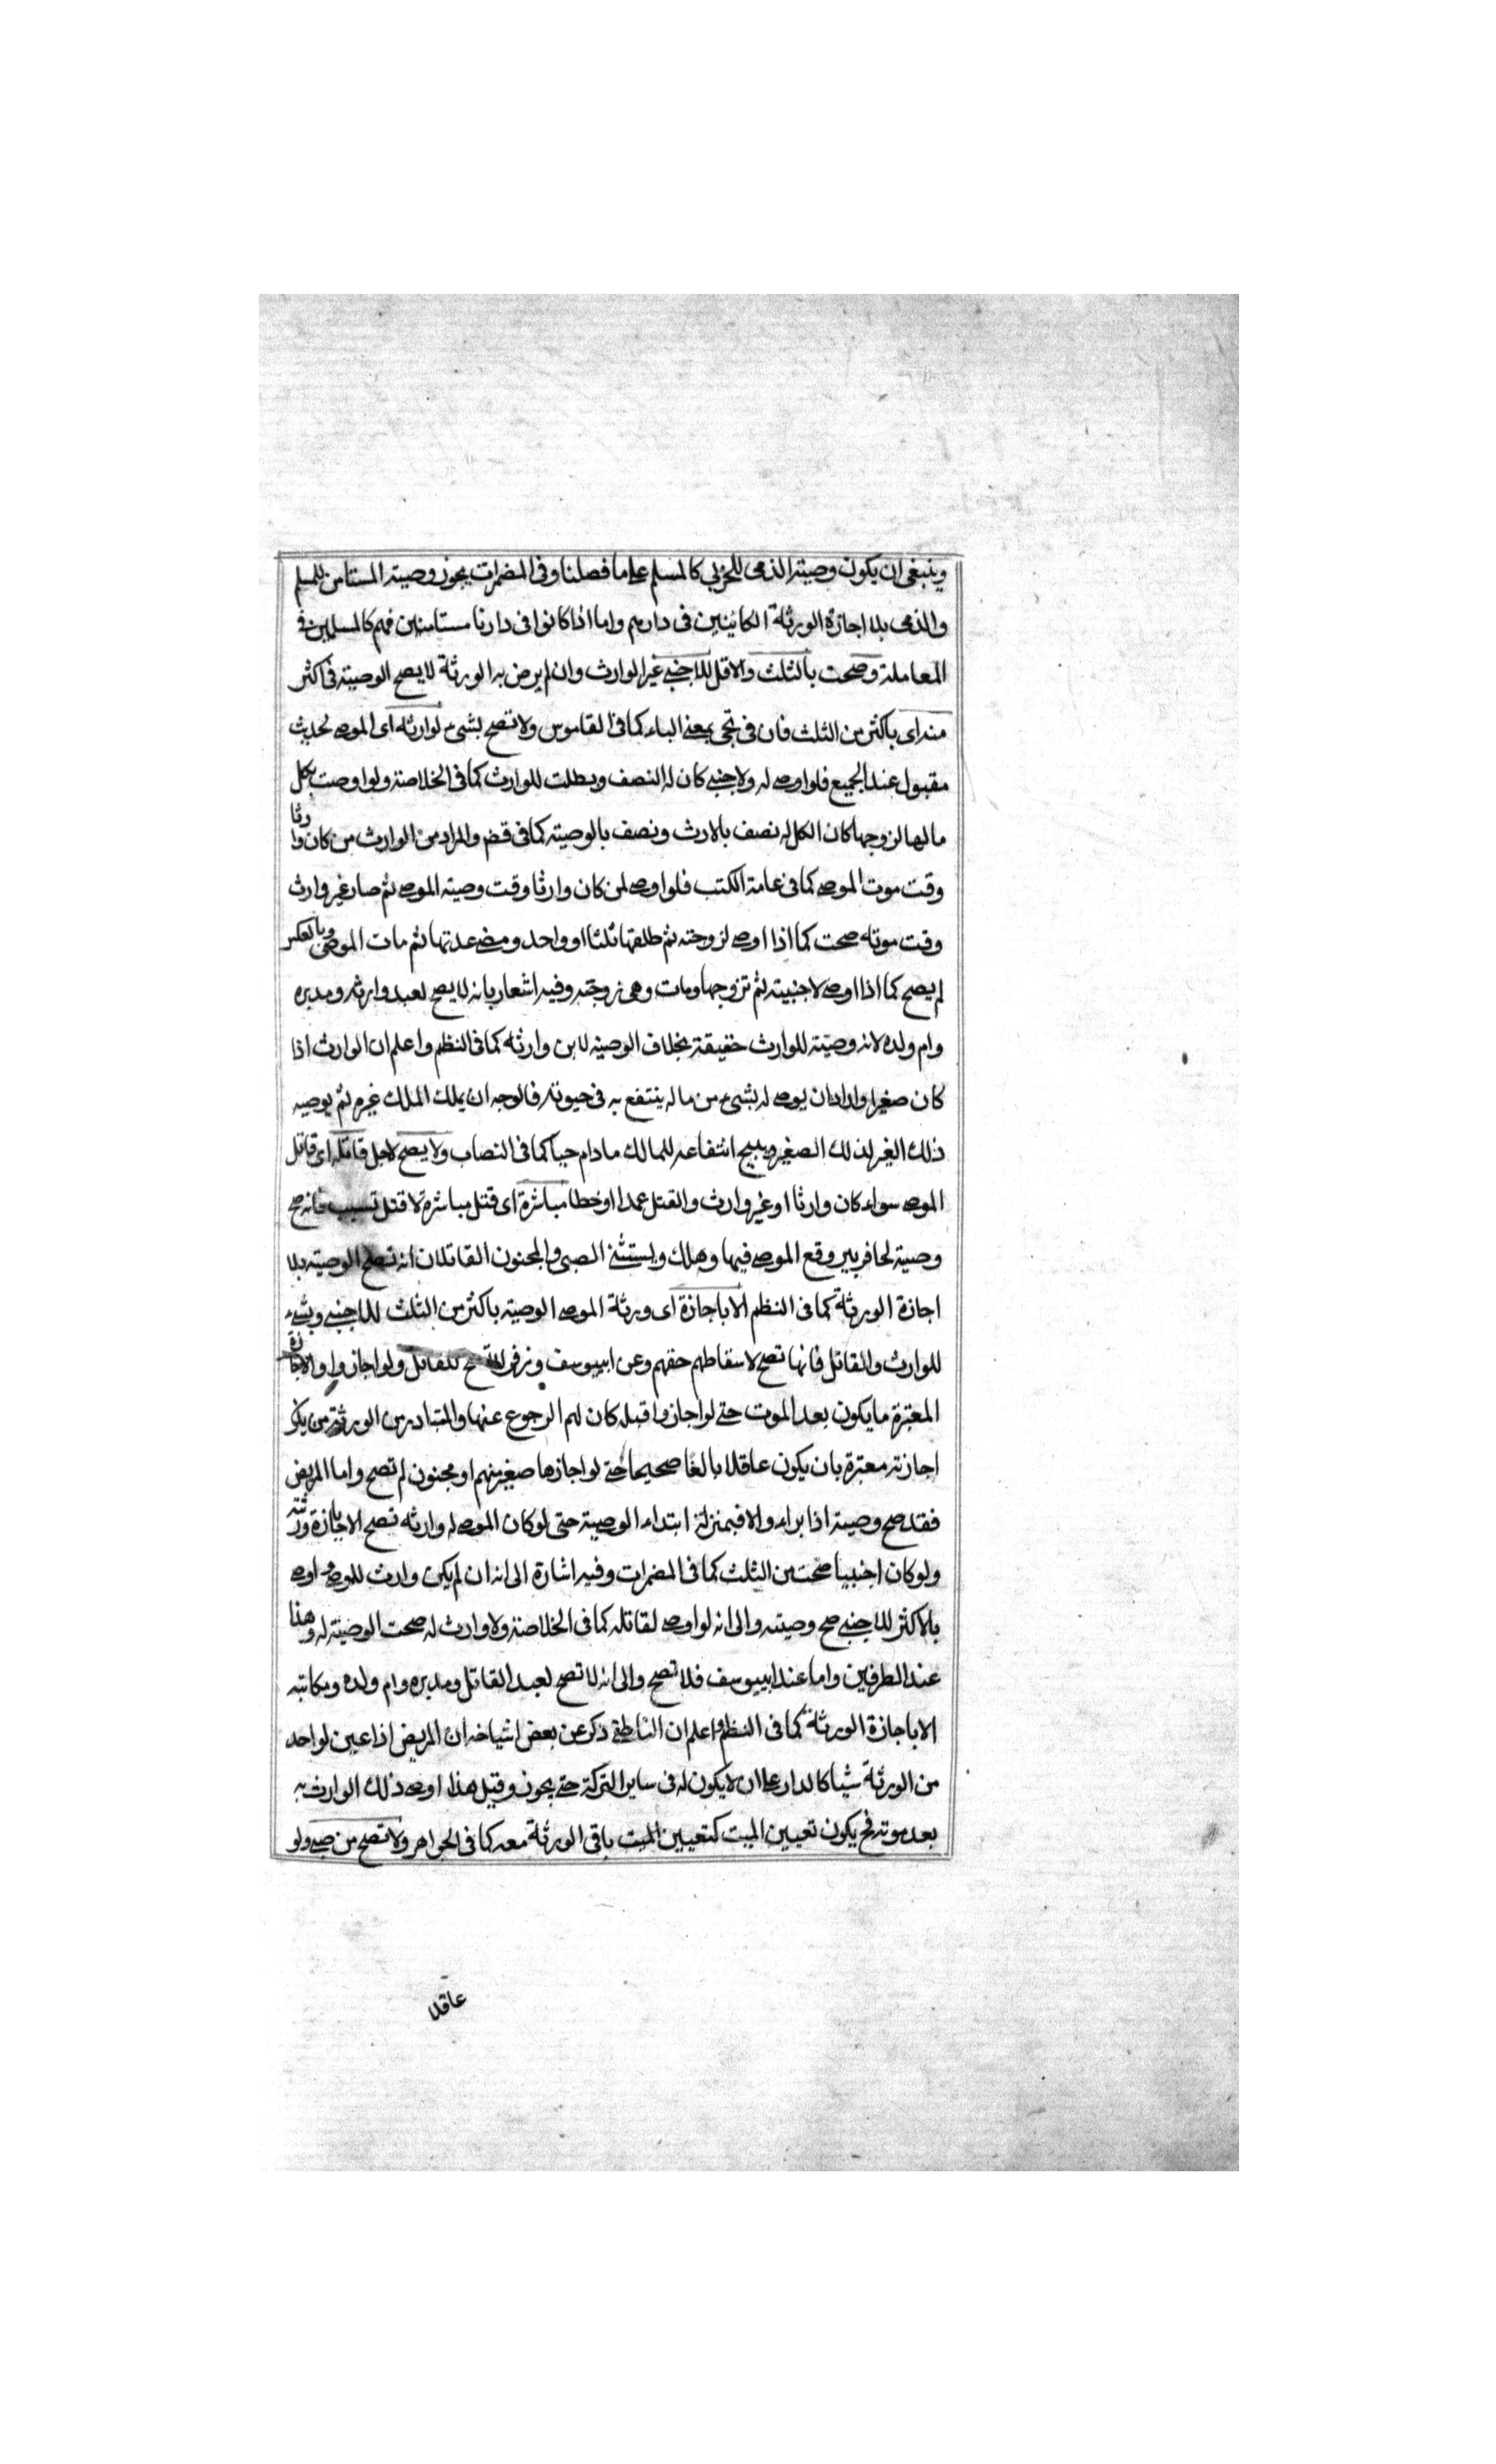 وينبغى ان يكون وصية الذمى للحربى كالمسلم على ما فصلنا وفى المضمرات يجوز وصية المستامن للمسلم
والذمى بلا اجازة الورثة الكاينين فى دارهم واما اذا كانوا فى دارنا مستامنين فهم كالمسلمين فى
المعاملة وصحت بالثلث والاقل للاجنبى غير الوارث وان لم يرض به الورثة لا يصح الوصية فى اكثر
منه اى باكثر من الثلث فان فى تجى بمعنى الباء كما فى القاموس ولا تصح بشىء لوارثه اى الموصى لحديث
مقبول عند الجميع فلو اوصى له ولاجنبى كان له النصف وبطلت للوارث كما فى الخلاصة ولو اوصت بكل
مالها لزوجها كان الكل له نصف بالارث ونصف بالوصية كما فى قضـ والمراد من الوارث من كان وارثا
وقت موت الموصى كما فى عامة الكتب فلو اوصى لمن كان وارثا وقت وصية الموصى ثم صار غير وارث
وقت موته صحت كما اذا اوصى لزوجته ثم طلقها ثلثا او واحد ومضى عدتها ثم مات الموصى وبالعكس
لم يصح كما اذا اوصى لاجنبية ثم تزوجها ومات وهى زوجته وفيه اشعار بانه لا يصح لعبد وارثه ومدبره
وام ولده لانه وصية للوارث حقيقة بخلاف الوصية لابن وارثه كما فى النظم واعلم ان الوارث اذا
كان صغيرا واراد ان يوصى له بشىء من ماله ينتفع به فى حيوته فالوجه ان يملك الملك غيره ثم يوصيه
ذلك الغير لذلك الصغير ويبيح انتفاعه للمالك ما دام حيا كما فى النصاب ولا يصح لاجل قاتله اى قاتل
الموصى سواء كان وارثا او غير وارث والقتل عمدا او خطا مباشرة اى قتل مباشرة لا قتل تسبيب فانه صح
وصية لحافر بير وقع الموصى فيها وهلك ويستثنى الصبى والمجنون القاتلان انه تصح الوصية بلا
اجازة الورثة كما فى النظم الا باجازة اى ورثة الموصى الوصية باكثر من الثلث للاجنبى وبشىء
للوارث والقاتل فانها تصح لاسقاطهم حقهم وعن ابى يوسف وزفر لا تصح للقاتل ولو اجازوا والاجازة
المعتبرة ما يكون بعد الموت حتى لو اجازوا قبله كان لهم الرجوع عنها والمتبادر من الورثة من يكون
اجازته معتبرة بان يكون عاقلا بالغا صحيحا حتى لو اجازها صغير منهم او مجنون لم تصح واما المريض
فقد صح وصية اذا براء والا فبمنزلة ابتداء الوصية حتى لو كان الموصى له وارثه تصح الا باجازة ورثته
ولو كان اجنبيا صحت من الثلث كما فى المضمرات وفيه اشارة الى انه ان لم يكن وارث للموصى اوصى
بالاكثر للاجنبى صح وصيته والى انه لو اوصى لقاتله كما فى الخلاصة ولا وارث له صحت الوصية له وهذا
عند الطرفين واما عند ابى يوسف فلا تصح والى انه لا تصح لعبد القاتل ومدبره وام ولده ومكاتبه
الا باجازة الورثة كما فى النظم واعلم ان الناطفى ذكر عن بعض اشياخه ان المريض اذا عين لواحد
من الورثة شيا كالدار على ان لا يكون له فى ساير التركة حتى يجوز وقيل هذا اوصى ذلك الوارث به
بعد موته فح يكون تعيين الميت كتعيين الميت باقى الورثة معه كما فى الجواهر ولا تصح من صبى ولو
عاقلا